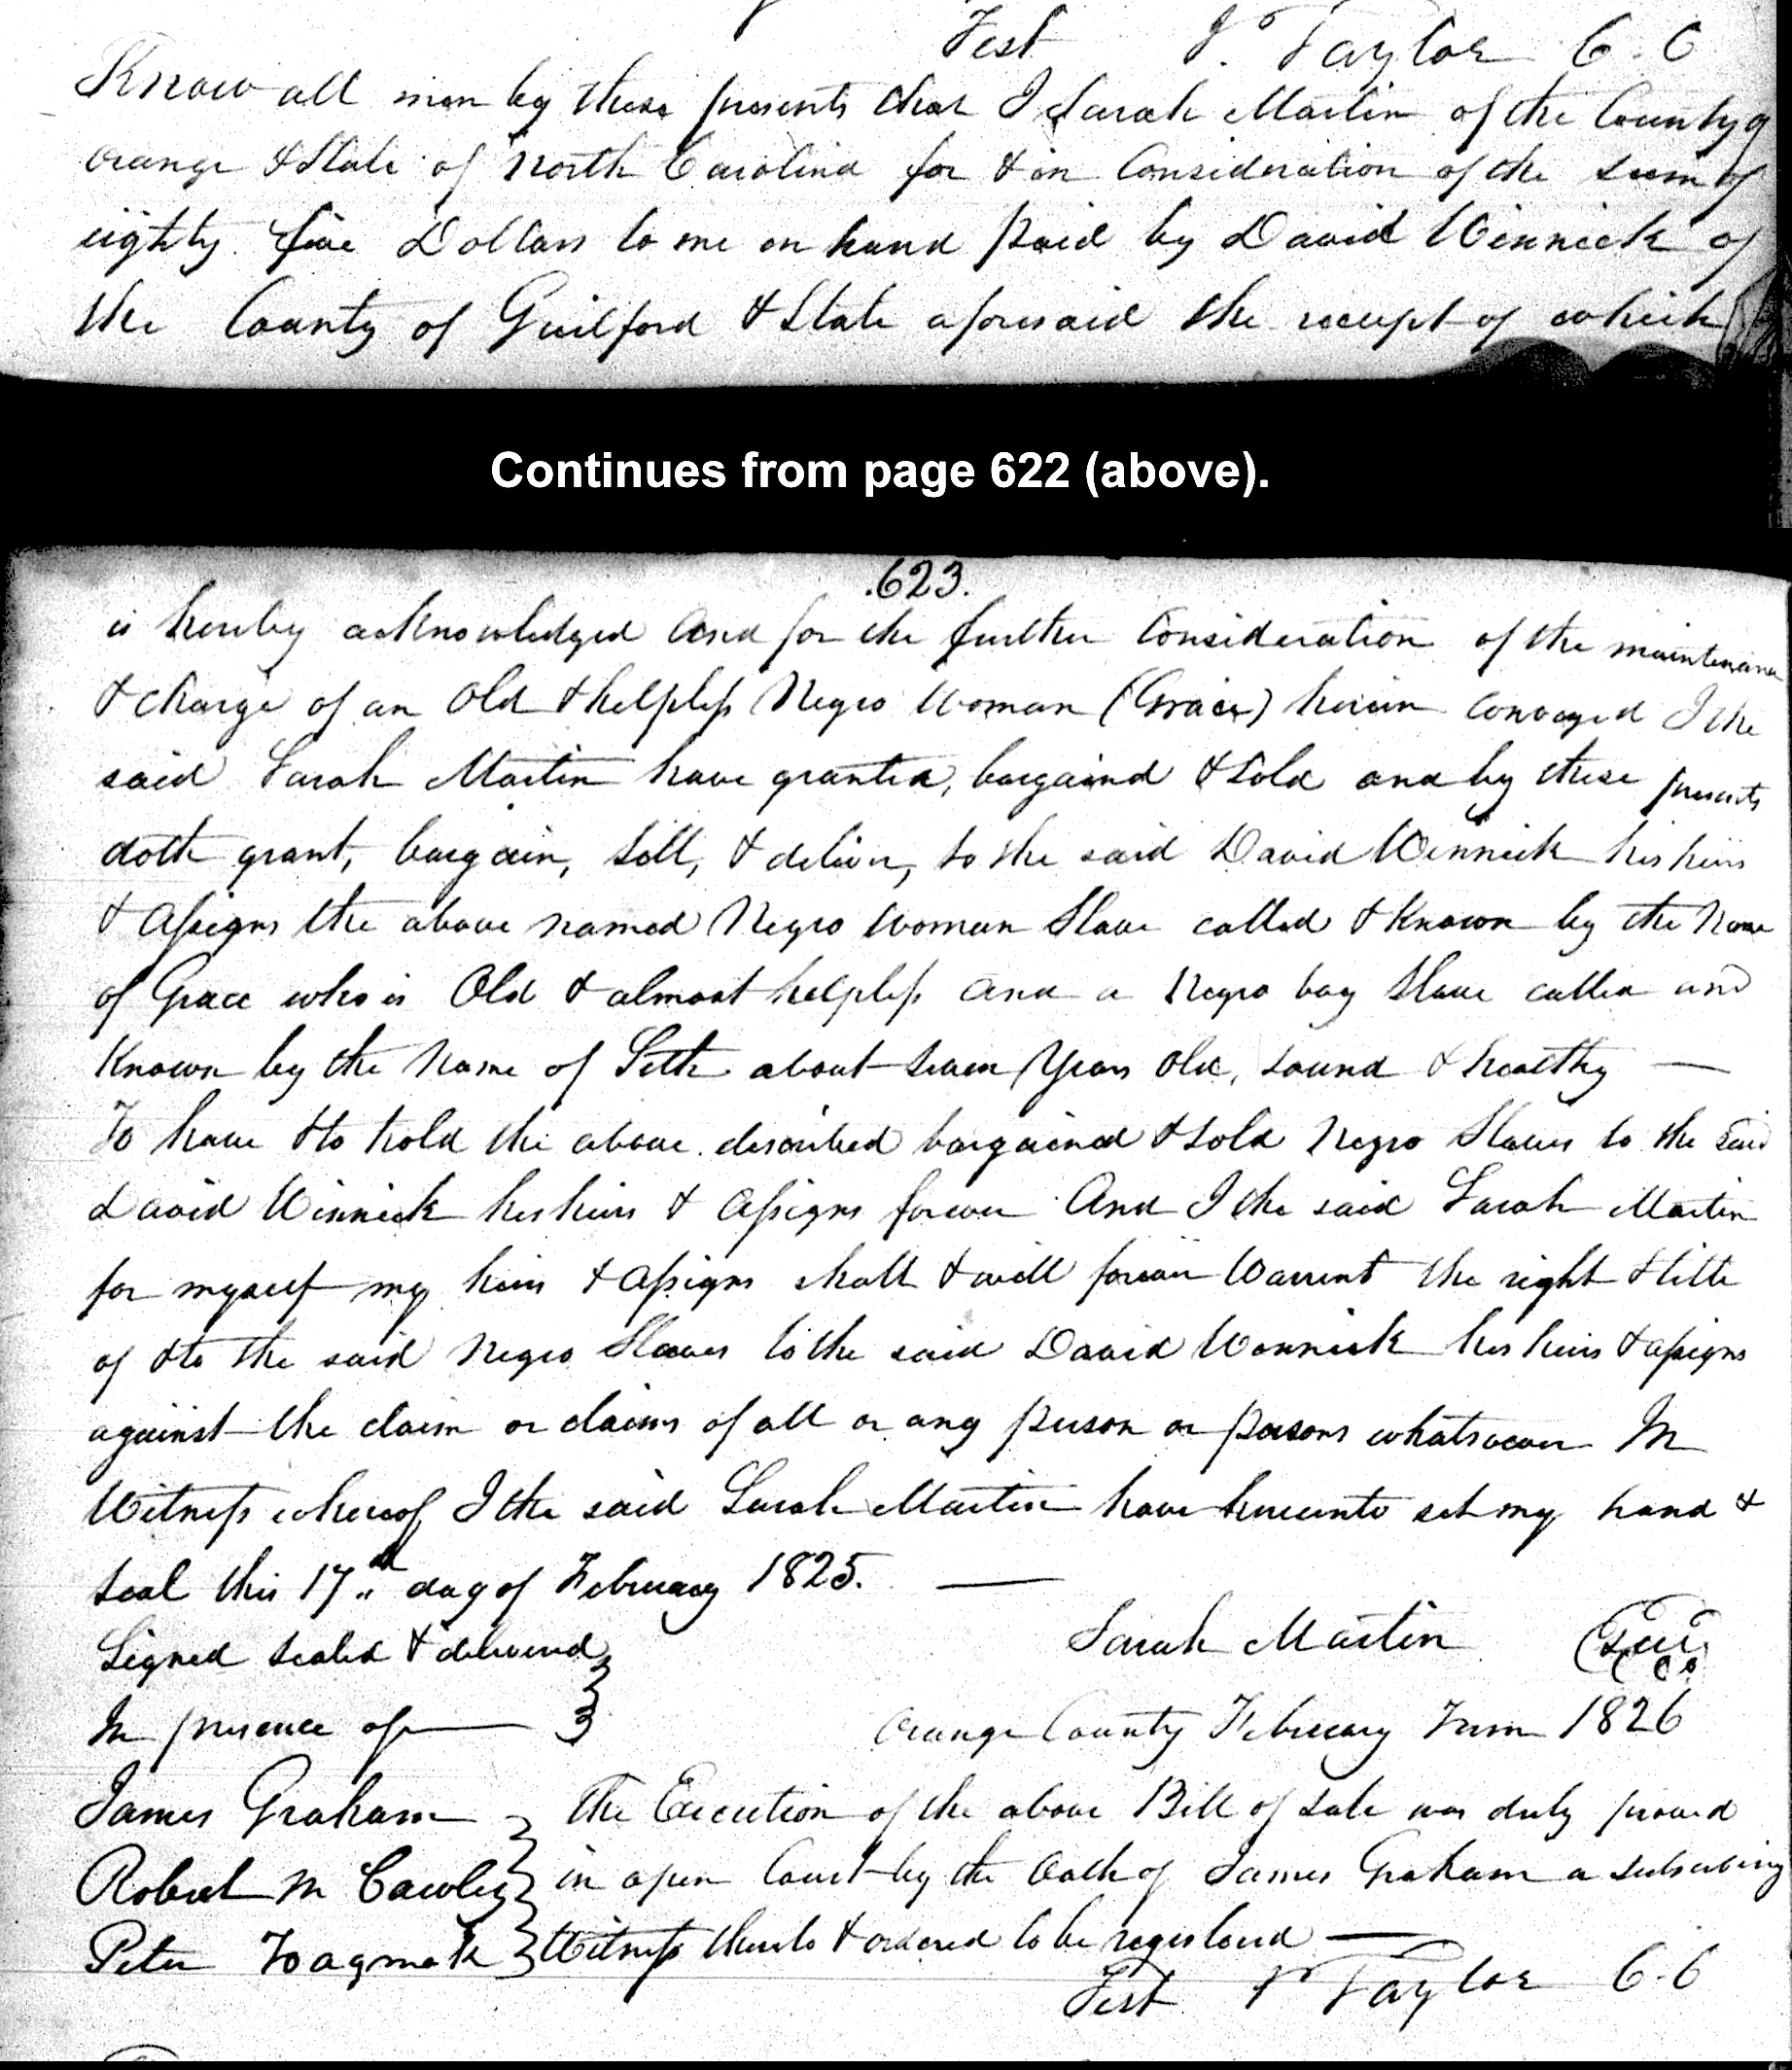 Test J. Taylor C. C
Know all men by these presents that I Sarah Martin of the County of
Orange & State of North Carolina for & in Consideration of the sum of
eighty five Dollars to me in hand paid by David Winnick of
the County of Guilford & State aforesaid the receipt of which
Continues from page 622 (above).
.623.
is hereby acknowledged and for the further Consideration of the maintenance
& charge of an old & helpless Negro Woman (Grace) herein conveyed I the
said Sarah Martin have granted, bargaind & Sold and by these presents
doth grant, bargain, sell, & deliver, to the said David Winnick his heirs
& assigns the above named Negro Woman Slave called & Known by the Name
of Grace who is Old & almost helpless and a Negro boy Slave called and
Known by the Name of Seth about seven Years old, sound & healthy —
To have & to hold the above described bargained & sold Negro Slaves to the said
David Winnick his heirs & assigns forever And I the said Sarah Martin
for myself my heirs & assigns shall & will forever Warrent the right & title
of & to the said Negro Slaves to the said David Winnick his heirs & assigns
against the claim or claims of all or any person or persons whatsoever In
Witness whereof I the said Sarah Martin have hereunto set my hand &
seal this 17th day of February 1825. —
Signed sealed & delivered
Sarah Martin (Seal)
In presence of —
Orange County February Term 1826
James Graham
The Execution of the above Bill of sale was duly proved
Robert M Cawley
in open Court by the Oath of James Graham a subscribing
Peter
Witness thereto & ordered to be registered —
Test J Taylor C. C